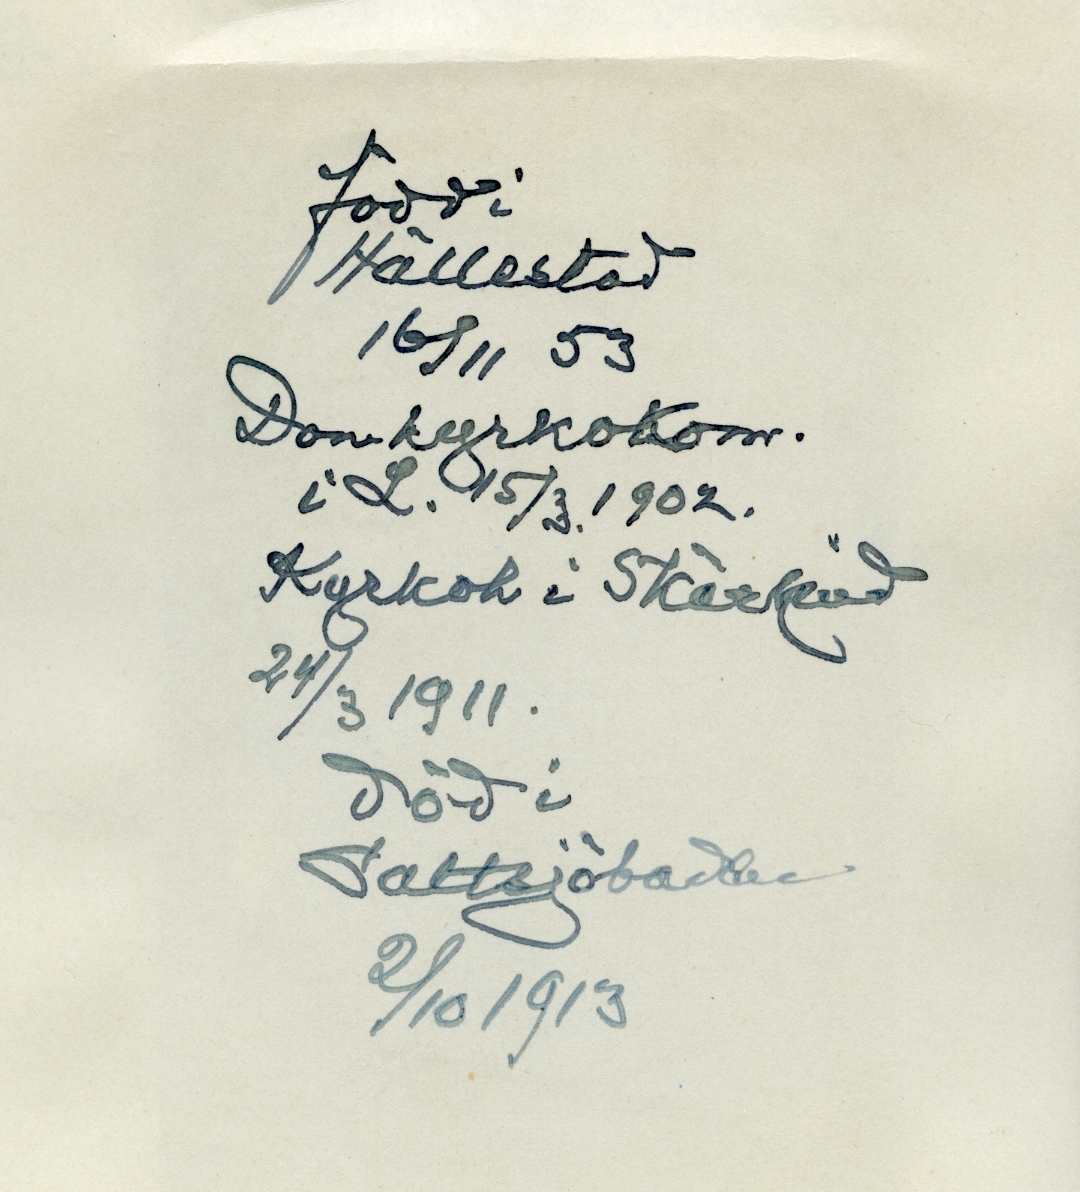 Född i
Hällestad
16/11 53
Domkyrkokom.
i L. 15/3. 1902.
Kyrkoh i Skärkind
24/3 1911.
död i
Saltsjöbaden
2/10 1913